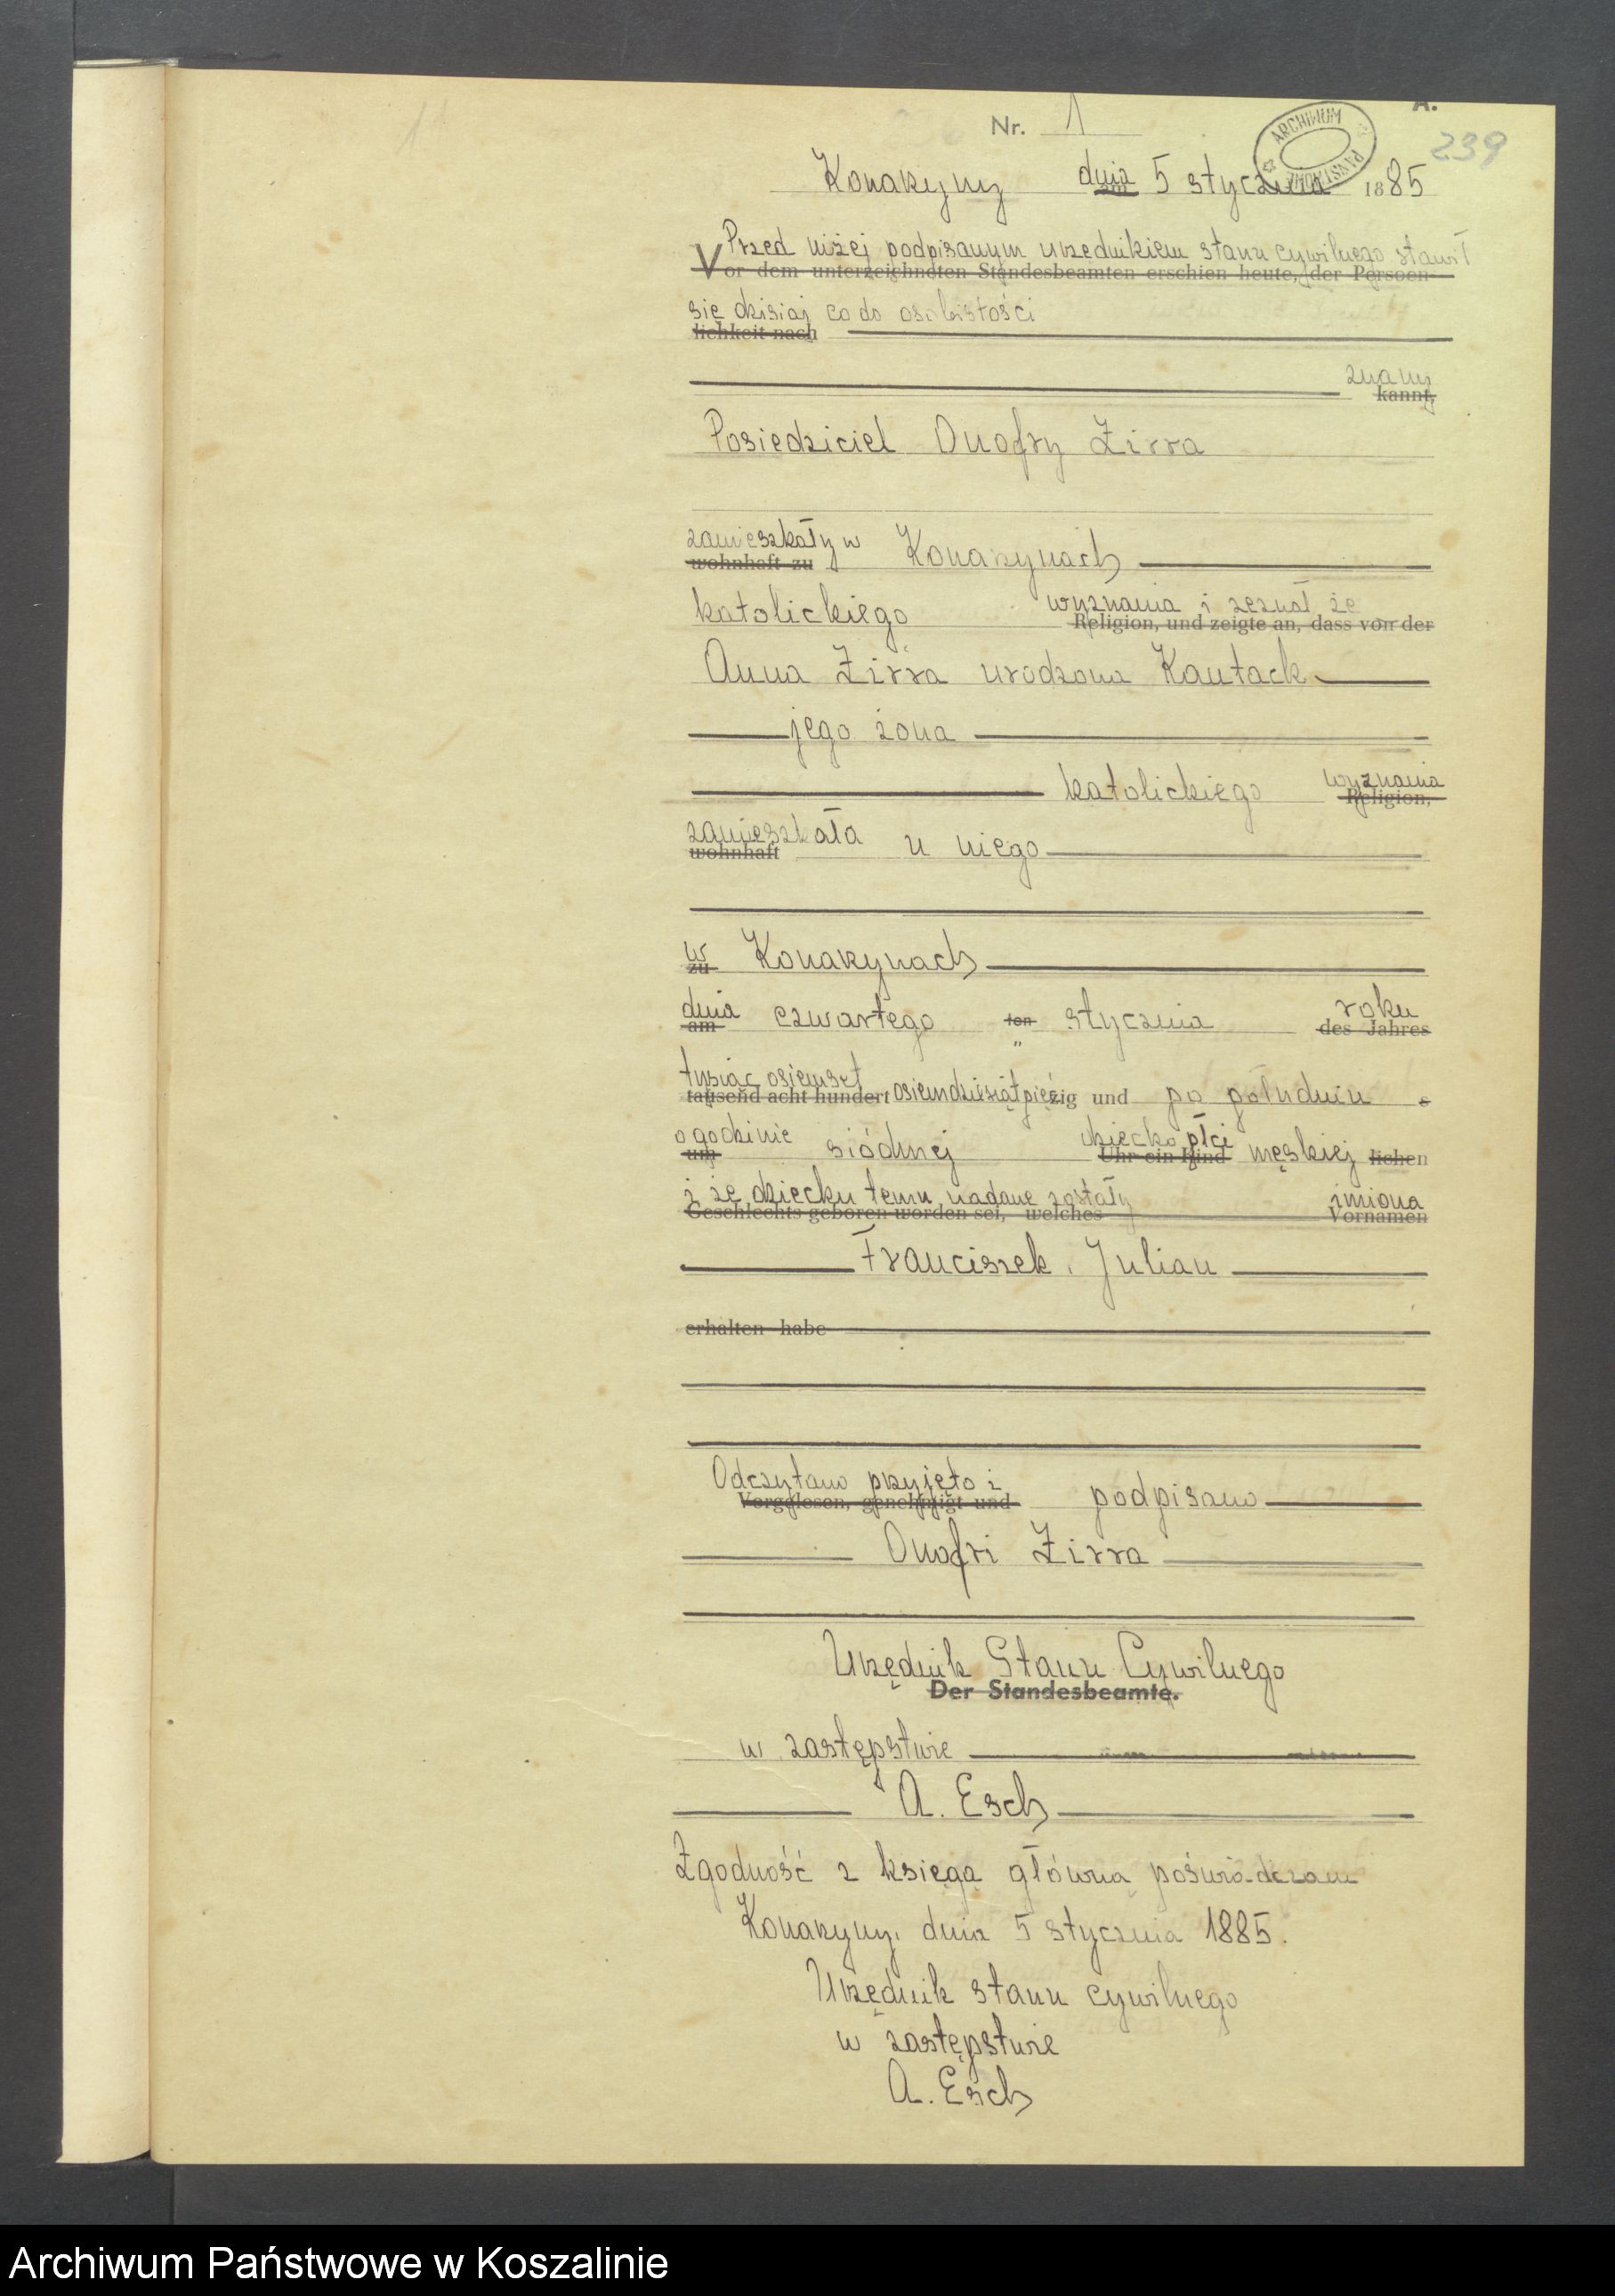 1
A.
Nr. 1
ARCHIWUM PAŃSTWOWE
239
Konarzyny dnia 5 stycznia 1885
Przed niżej podpisanym urzednikiem stanu cywilnego stawił
Vor dem unterzeichneten Standesbeamten erschien heute, der Persoen-
się dzisiaj co do osobistości
lichkeit nach
znany
kannt,
Posiedziciel Onofry Zirra
zamieszkały w Konarzynach
wohnhaft zu
katolickiego wyznania i zeznał że
Religion, und zeigte an, dass von der
Anna Zirra urodzona Kautack
jego żona
katolickiego wyznania
Religion,
zamieszkała u niego
wohnhaft
w Konarzynach
zu
dnia czwartego ten stycznia roku
am des Jahres
tysiąc osiemset osiemdziesiątpięć zig und po południu
tausend acht hundert
o godzinie siódmej dziecko płci męskiej lichen
um Uhr ein Kind
i że dziecku temu nadane zostały imiona
Geschlechts geboren worden sei, welches Vornamen
Franciszek, Julian
erhalten habe
Odczytano przyjęto i podpisano
Vorgelesen, genehmigt und
Onofri Zirra
Urzędnik Stanu Cywilnego
Der Standesbeamte.
w zastępstwie
A. Esch
Zgodność z księgą główną poświadczam
Konarzyny, dnia 5 stycznia 1885.
Urzędnik stanu cywilnego
w zastępstwie
A. Esch
Archiwum Państwowe w Koszalinie